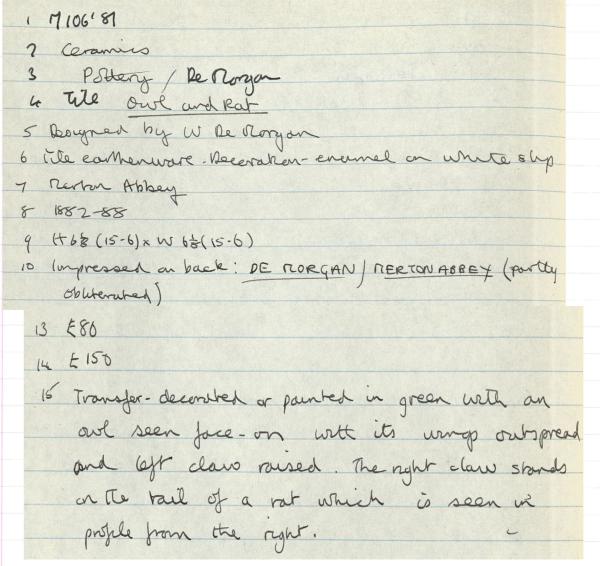 1 M106'87
2 Ceramics
3 Pottery / De Morgan
4 Tile Owl and Rat
5 Designed by W De Morgan
6 Tile earthenware. Decoration - enamel on white slip
7 Merton Abbey
8 1882-88
9 H 6⅛ (15-6) x W 6⅛ (15-6)
10 Impressed on back: DE MORGAN / MERTON ABBEY (partly
obliterated)
13 £80
14 £150
15 Transfer-decorated or painted in green with an
owl seen face-on with its wings outspread
and left claw raised. The right claw stands
on the tail of a rat which is seen in
profile from the right.